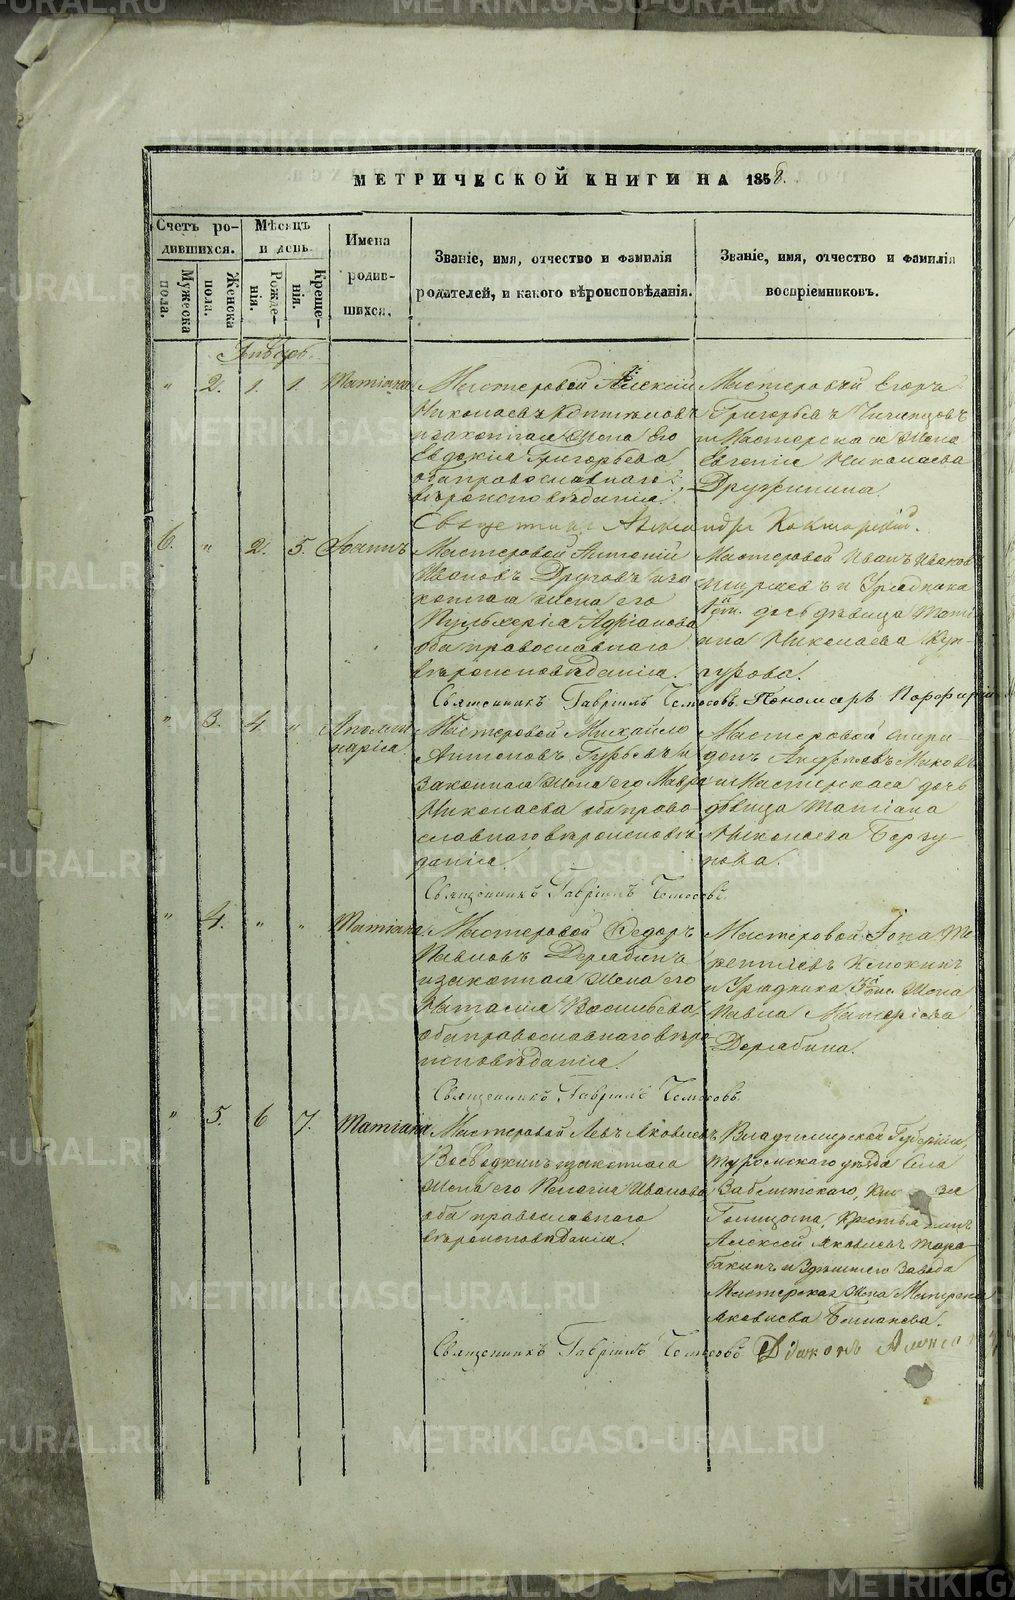 МЕТРИЧЕСКОЙ КНИГИ НА 1858.
Счетъ ро-
дившихся.
Мужеска
пола.
Женска
пола.
Мѣсяцъ
и день.
Рожде-
нія.
Креще-
нія.
Имена
родив-
шихся.
Званіе, имя, отчество и фамилія
родителей, и какого вѣроисповѣданія.
Званіе, имя, отчество и фамилія
воспріемниковъ.
Январь.
" 2. 1. 1. Татіана
Мастеровой Алексій
Николаевъ
и законная жена его
Евдокія Григорьева,
оба православнаго
вѣроисповѣданія.
Мастеровой Егоръ
Григорьевъ
и Мастерская жена
Евгенія Николаева
Дружинина.
Священникъ Александръ
6. " 2. 5. Іоаннъ
Мастеровой Антоній
Ивановъ Друговъ и за
конная жена его
Пульхерія Адріанова
оба православнаго
вѣроисповѣданія.
Мастеровой Иванъ Иванов
и Урядника
дочь дѣвица Тати
ана Николаева Кун-
гурова.
Священникъ Гавріилъ Пономарь Порфирій
" 3. 4. " Аполли
нарія
Мастеровой Михайло
Антоновъ Гурьевъ и
законная жена его Мавра
Николаева оба право
славнаго вѣроисповѣ
данія.
Мастеровой Спири-
донъ Андреевъ
и Мастерская дочь
дѣвица Татіана
Николаева
нова.
Священникъ Гавріилъ
" 4. " " Татіана
Мастеровой Ѳедоръ
Павловъ Дерябинъ
и законная жена его
Наталія Васильева,
оба православнаго вѣро
исповѣданія.
Мастеровой Іона
и Урядника жена
Павла
Дерябина.
Священникъ Гавріилъ
" 5. 6 7. Татіана
Мастеровой Левъ Яковлевъ
и законная
жена его Пелагія Иванова
оба православнаго
вѣроисповѣданія.
Владимирской Губерніи,
Муромскаго уѣзда Села
Голицына, Крестьянинъ
Алексей Яковлевъ Тара-
бакинъ и Здѣшняго Завода
Мастерская жена Матрена
Яковлева
Священникъ Гавріилъ Діаконъ
METRIKI.GASO-URAL.RU